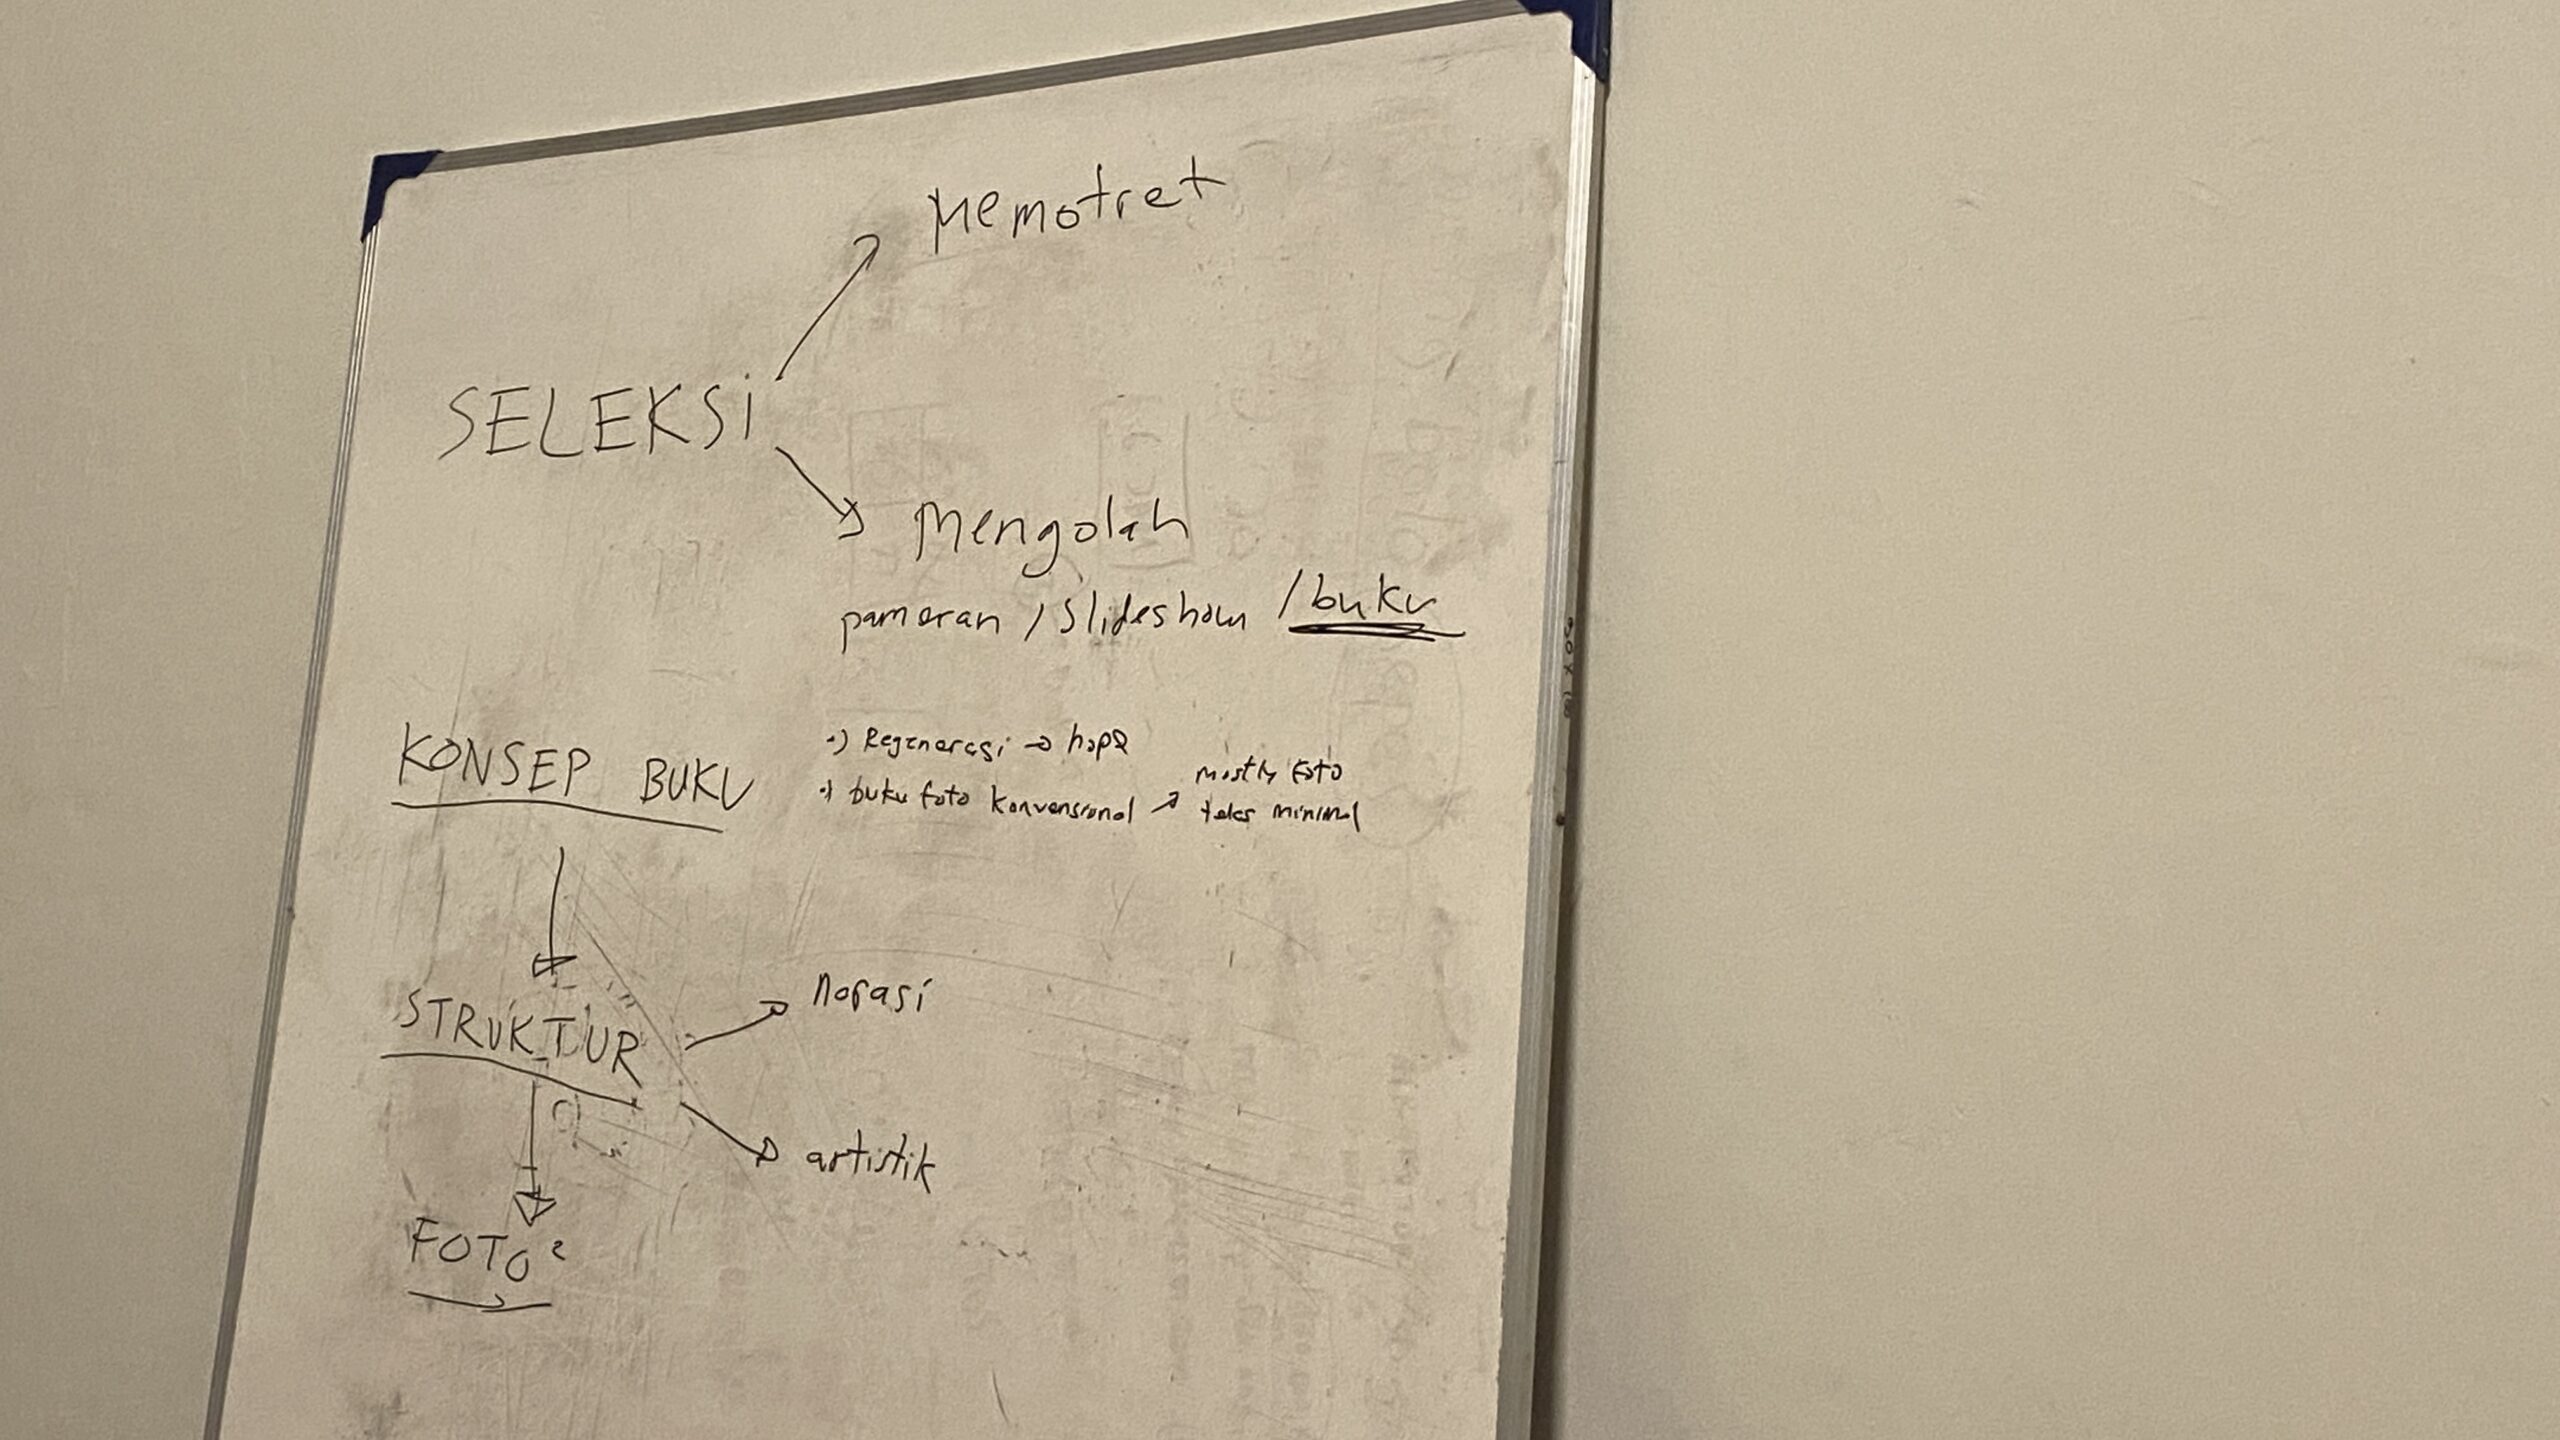 Memotret
SELEKSi
Mengolah
pameran / Slideshow / buku
KONSEP BUKU
•) Regenerasi → hope
•) buku foto konvensional ↗ mostly foto
teks minimal
STRUKTUR
narasi
artistik
FOTO²